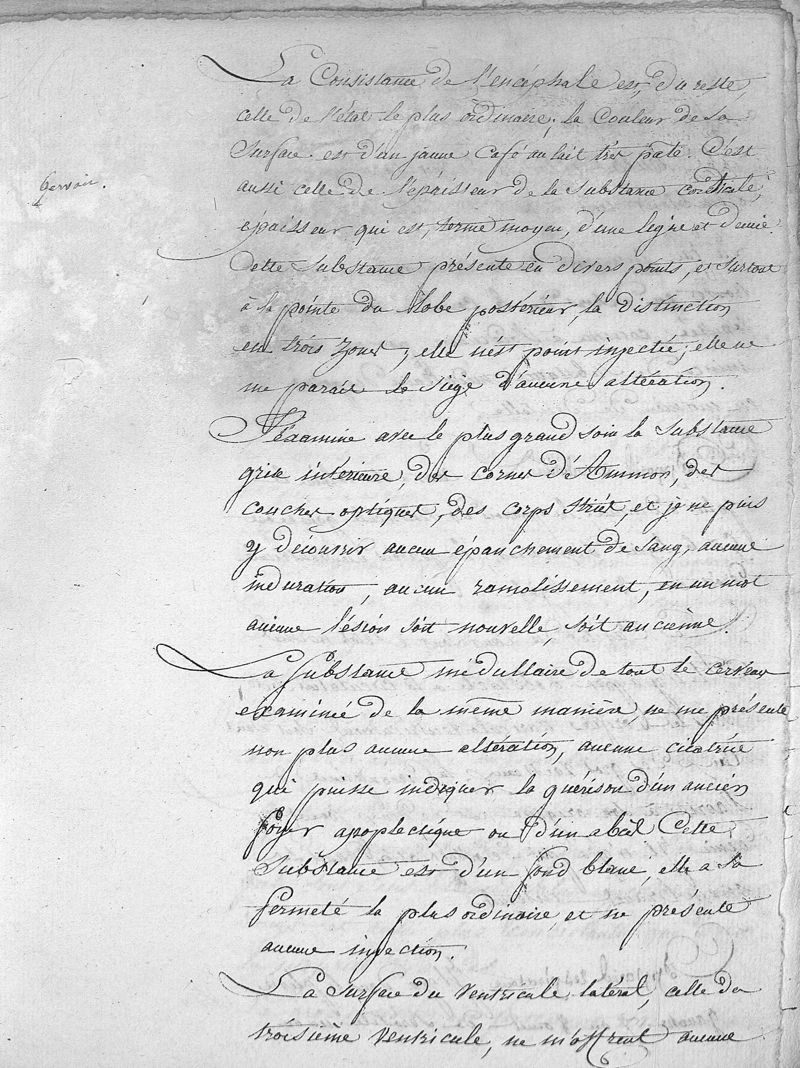 La Consistance de l'encéphale est, du reste,
celle de l'état le plus ordinaire; la Couleur de sa
Surface est d'un jaune Café au lait très pale. C'est
aussi celle de l'épaisseur de la substance corticale,
épaisseur qui est, terme moyen, d'une ligne et demie.
Cette substance présente en divers points, et surtout
à la pointe du lobe postérieur, la distinction
en trois zones; elle n'est point injectée; elle ne
me parait le siège d'aucune altération.
J'éxamine avec le plus grand soin la substance
grise intérieure, des cornes d'Ammon, des
couches optiques, des corps striés, et je ne puis
y découvrir aucun épanchement de sang, aucune
induration, aucun ramolissement, en un mot
aucune lésion soit nouvelle, soit ancienne.
La substance médullaire de tout le cerveau
examinée de la même manière, ne me présente
non plus aucune altération, aucune cicatrice
qui puisse indiquer la guérison d'un ancien
foyer apoplectique ou d'un abcès. Cette
substance est d'un fond blanc, elle a sa
fermeté la plus ordinaire, et ne présente
aucune injection.
La surface du ventricule latéral, celle du
troisième ventricule, ne m'offrent aucune